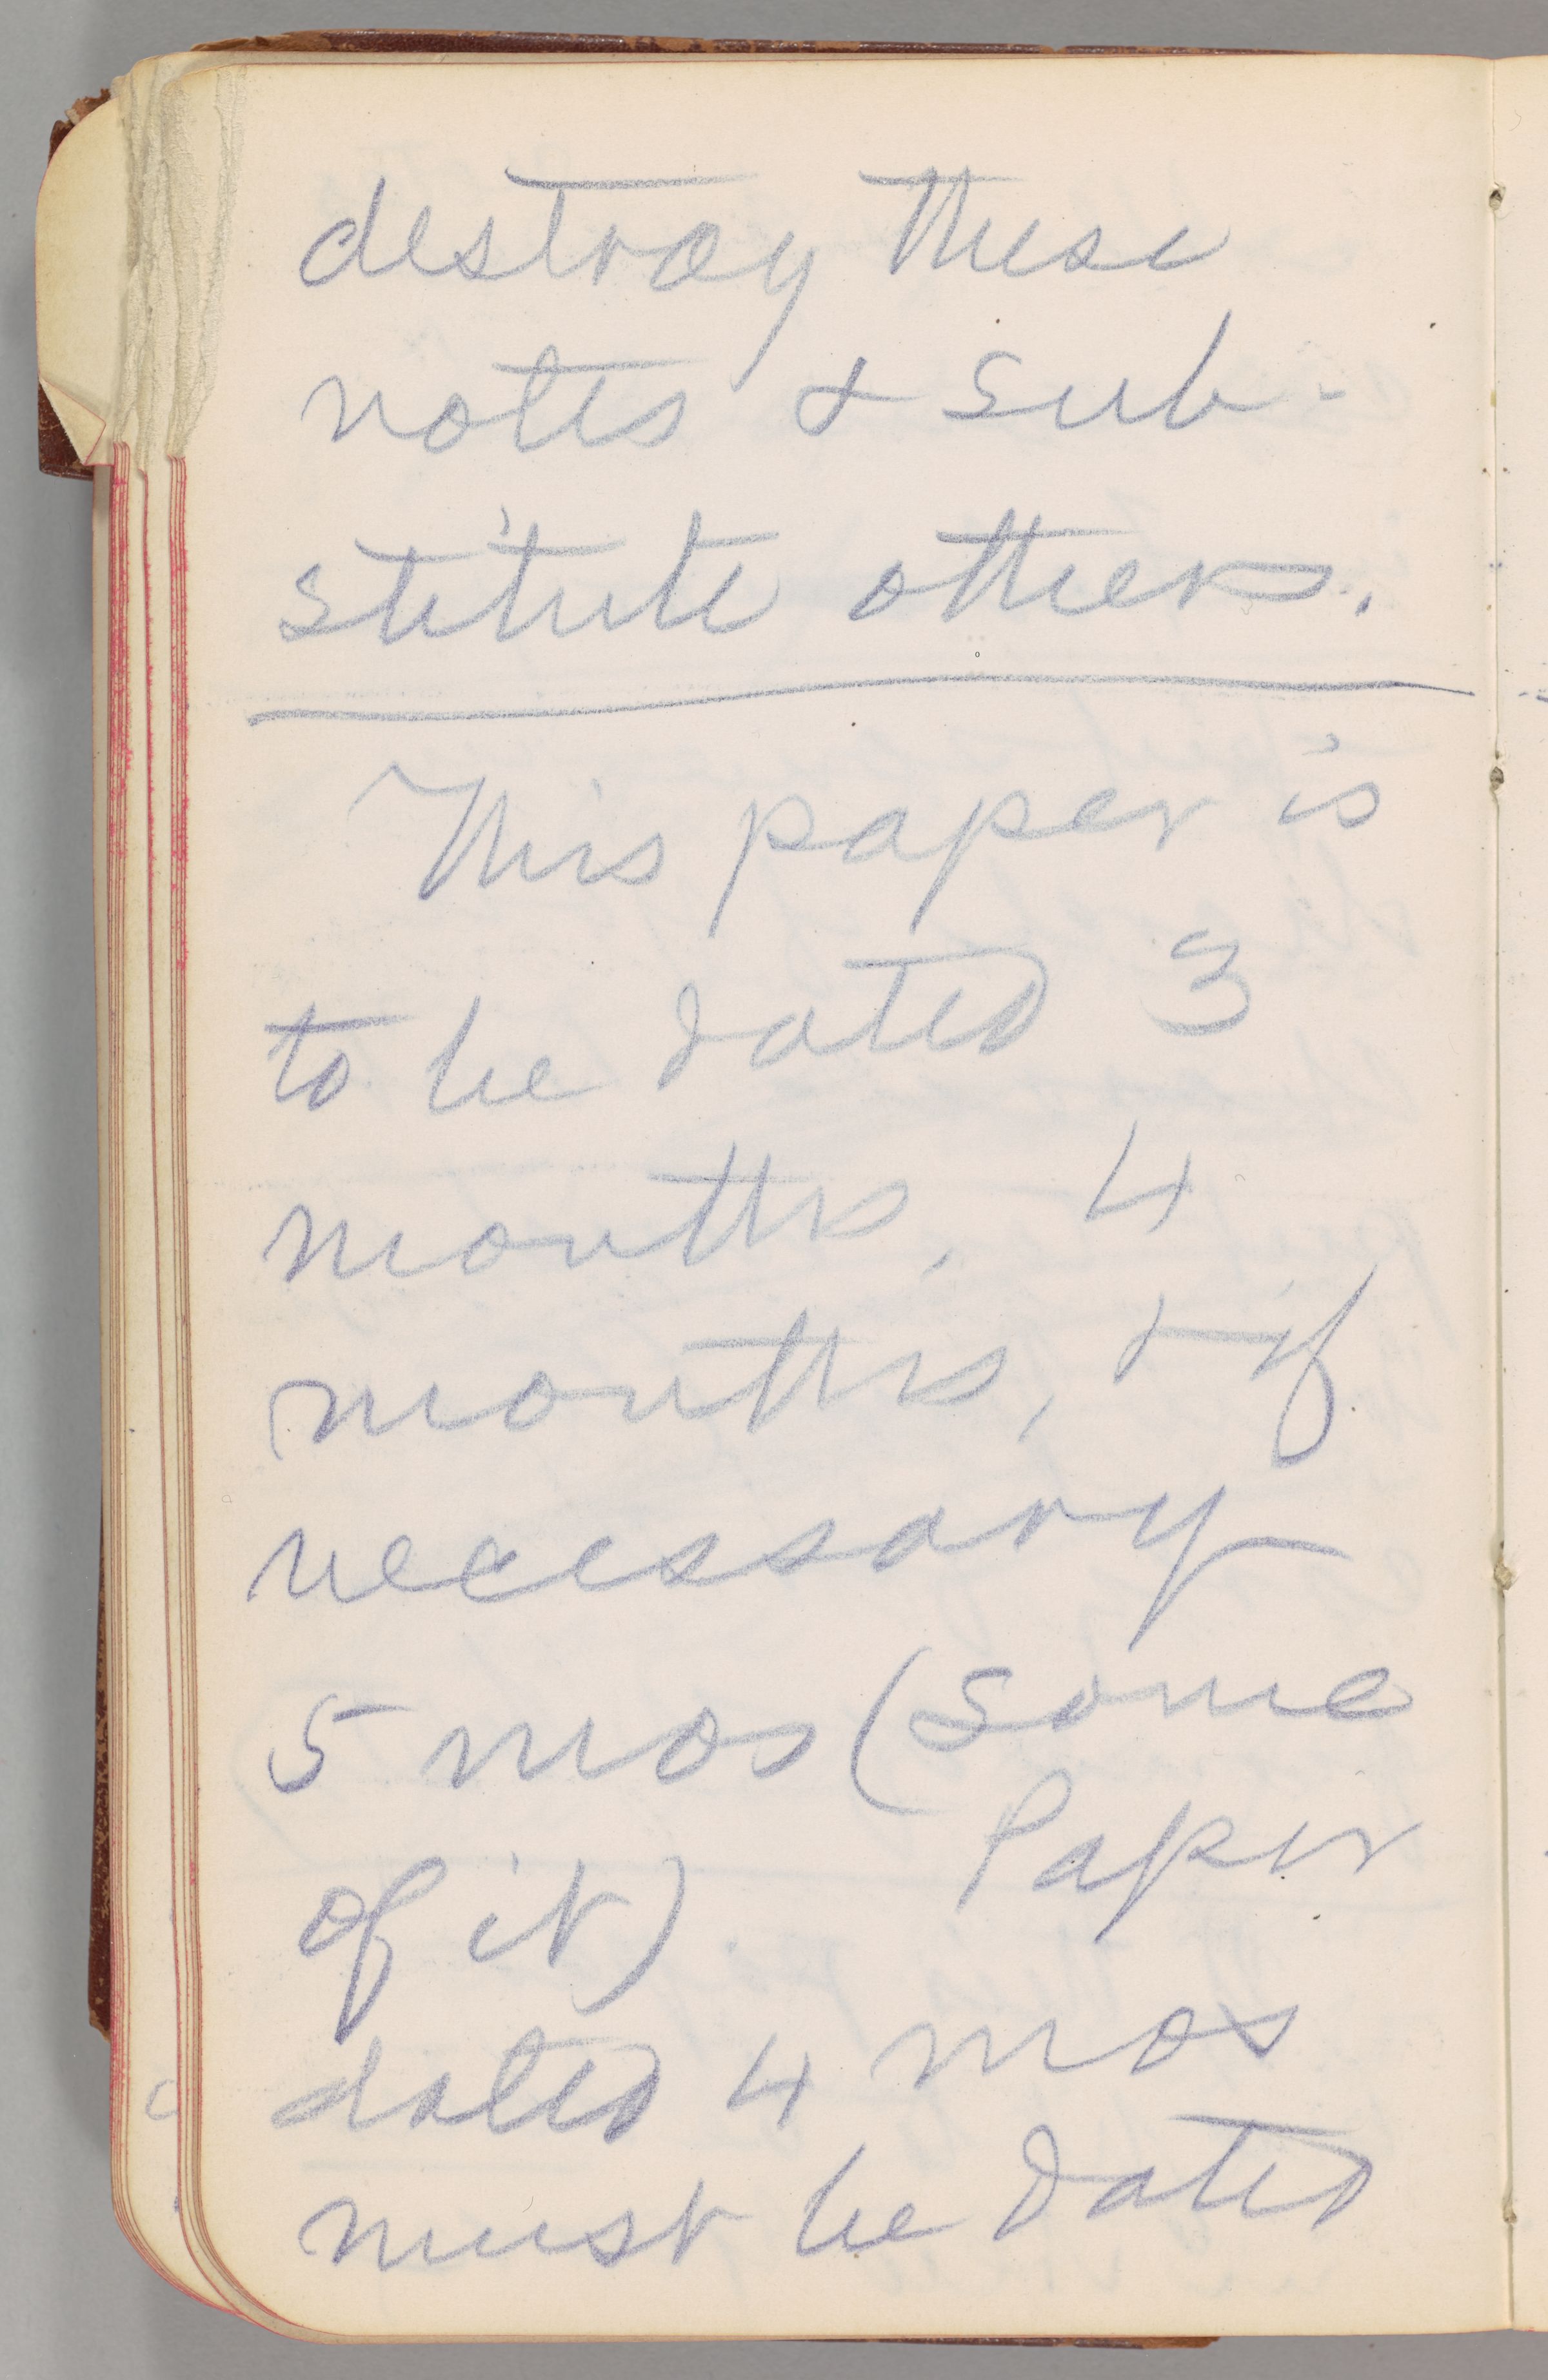 destroy these
notes & sub-
stitute others.
This paper is
to be dated 3
months, 4
months, & if
necessary
5 mos (some
of it) Paper
dated 4 mos
must be dated